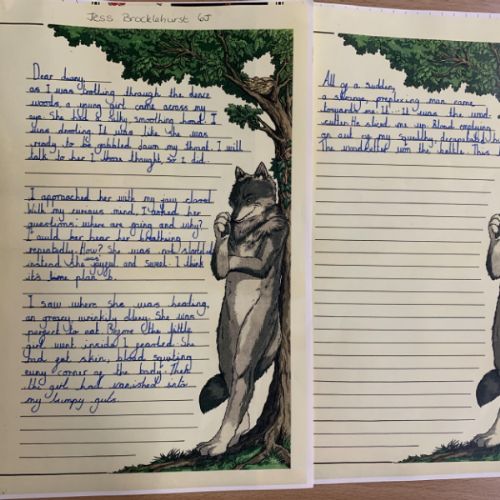 Jess Brocklehurst 6J
Dear diary,
as I was bottling through the dence
woods, a young girl came across my
eye. She had a silky smoothing hand. I
was drooling. It was like she was
ready to be gobbled down my throat. I will
talk to her I those thought, so I did.
I approached her with my jaw closed.
With my curious mind, I asked her
questions: where are going and why?
I could her hear her breathing
repeatidly. How? She was not startled
instead she was joyful and sweet. I think
it's time plan b.
I saw where she was heading,
an greasy, wrinkily diary. She was
perfect to eat. Before the little
girl went inside I
She
had got skin, blood squirting
evry corner of the body. Then
the girl had vanished into
my lumpy guts.
All of a sudden,
a strong, man came
towards me. It was the wood
cutter. He sliced me up. Blood
out of my squishy,
The woodcutter won the battle. Thus